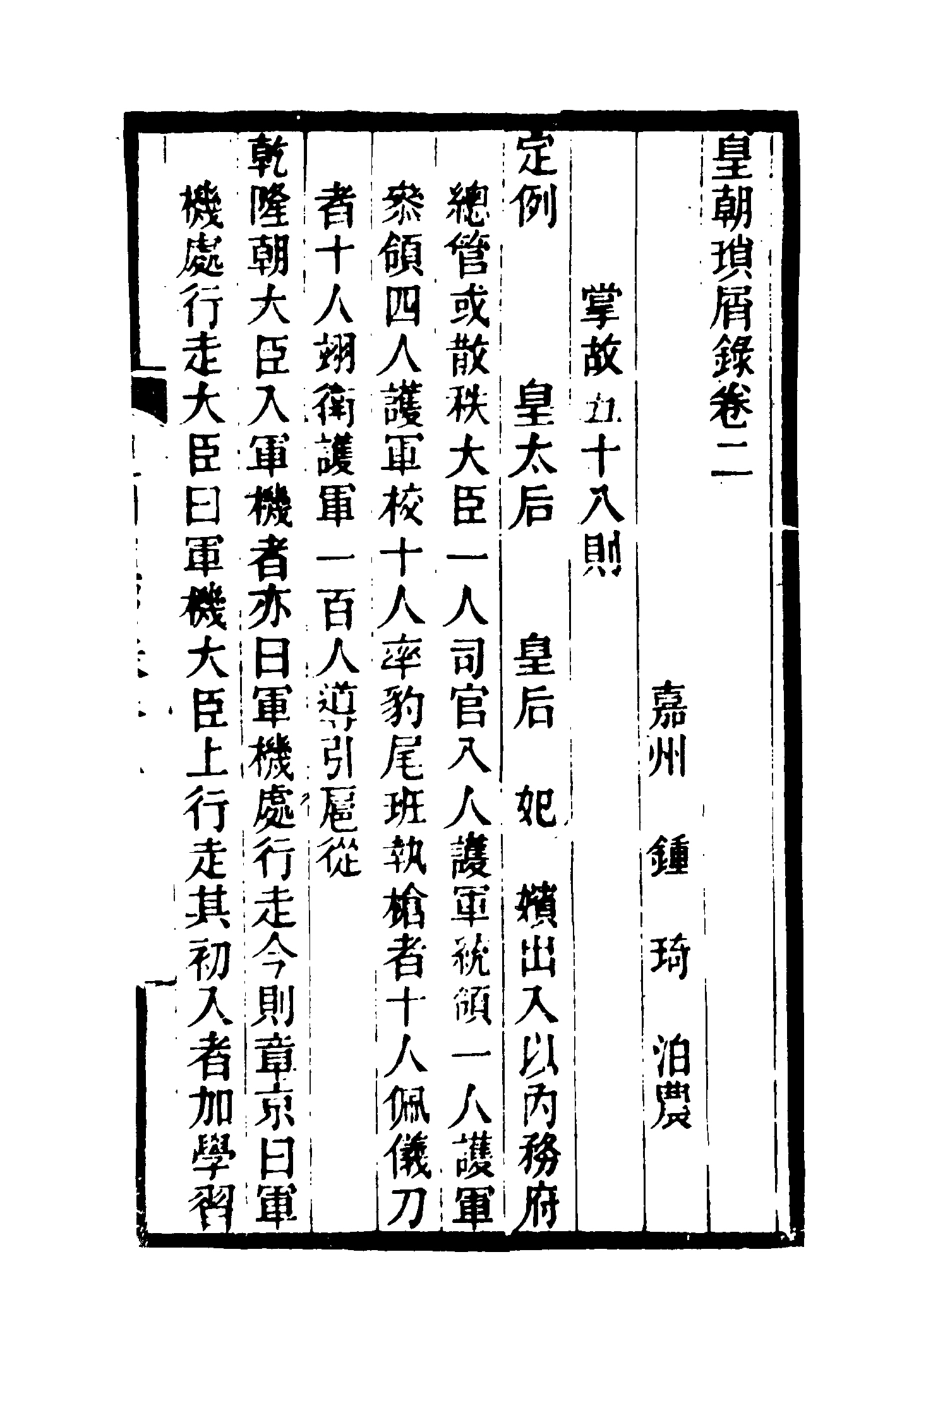 皇朝瑣屑錄卷二
嘉州 鍾 琦 泊農
掌故五十八則
定例 皇太后 皇后 妃 嬪出入以內務府
總管或散秩大臣一人司官八人護軍統領一人護軍
叅領四人護軍校十人率豹尾班執槍者十人佩儀刀
者十人翊衛護軍一百人導引扈從
乾隆朝大臣入軍機者亦曰軍機處行走今則章京曰軍
機處行走大臣曰軍機大臣上行走其初入者加學習